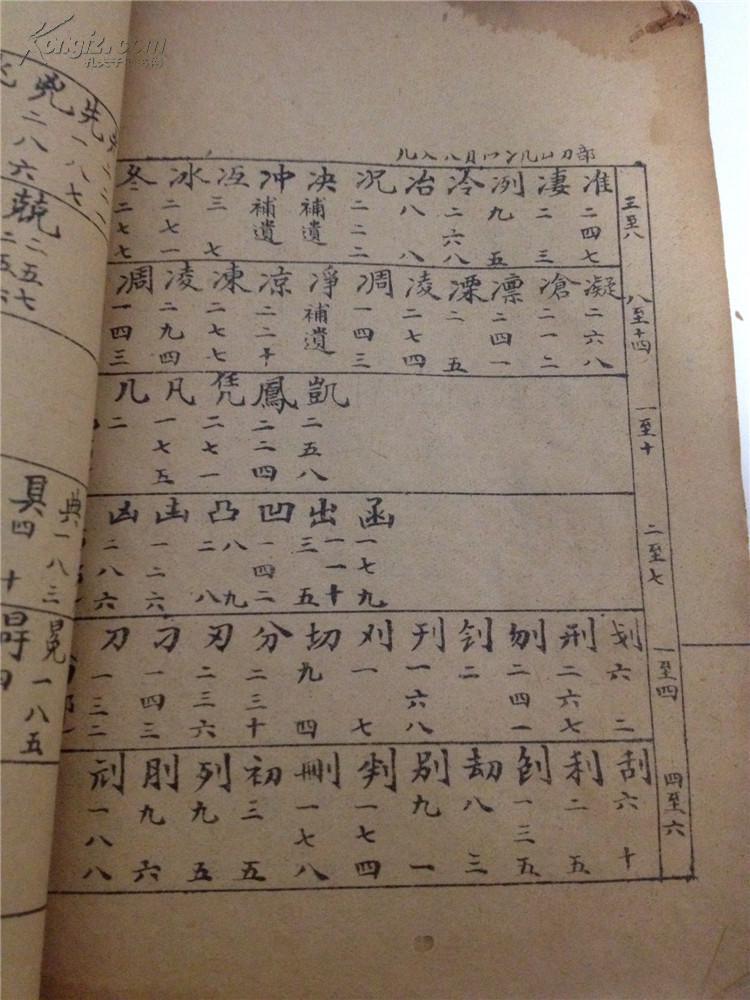 Kongfz.com
儿入八冂冖冫几凵刀部
冬 冰 冱 冲 决 况 冶 冷 冽 凄 准
二七七 二七一 三七 補遺 補遺 二二二 八八 二六八 九五 二三 二四七
三至八
凋 凌 凍 凉 凈 凋 凌 凓 凛 凔 凝
一四三 二九四 二七七 二二十 補遺 一四三 二七四 二五 二四一 二一二 二六八
八至十四
几 凡 凭 鳳 凱
二 一七五 二七一 二二四 二五八
一至十
凶 凷 凸 凹 出 函
二八六 一二六 二八 八九 一四二 三五 一一十 一七九
二至七
刀 刁 刃 分 切 刈 刊 刎 刑 划
一三二 一四三 二三六 二三十 九四 一七 一六八 二四一 二六七 六二
一至四
刖 列 初 刪 判 別 劫 刨 利 刮
一八八 九六 九五 三五 一七八 一七四 九一 八三 一三五 二五 六十
四至六
兜 先
二八六 一八七
兢
二五七
具 典
四十 一八三
冕
一八五